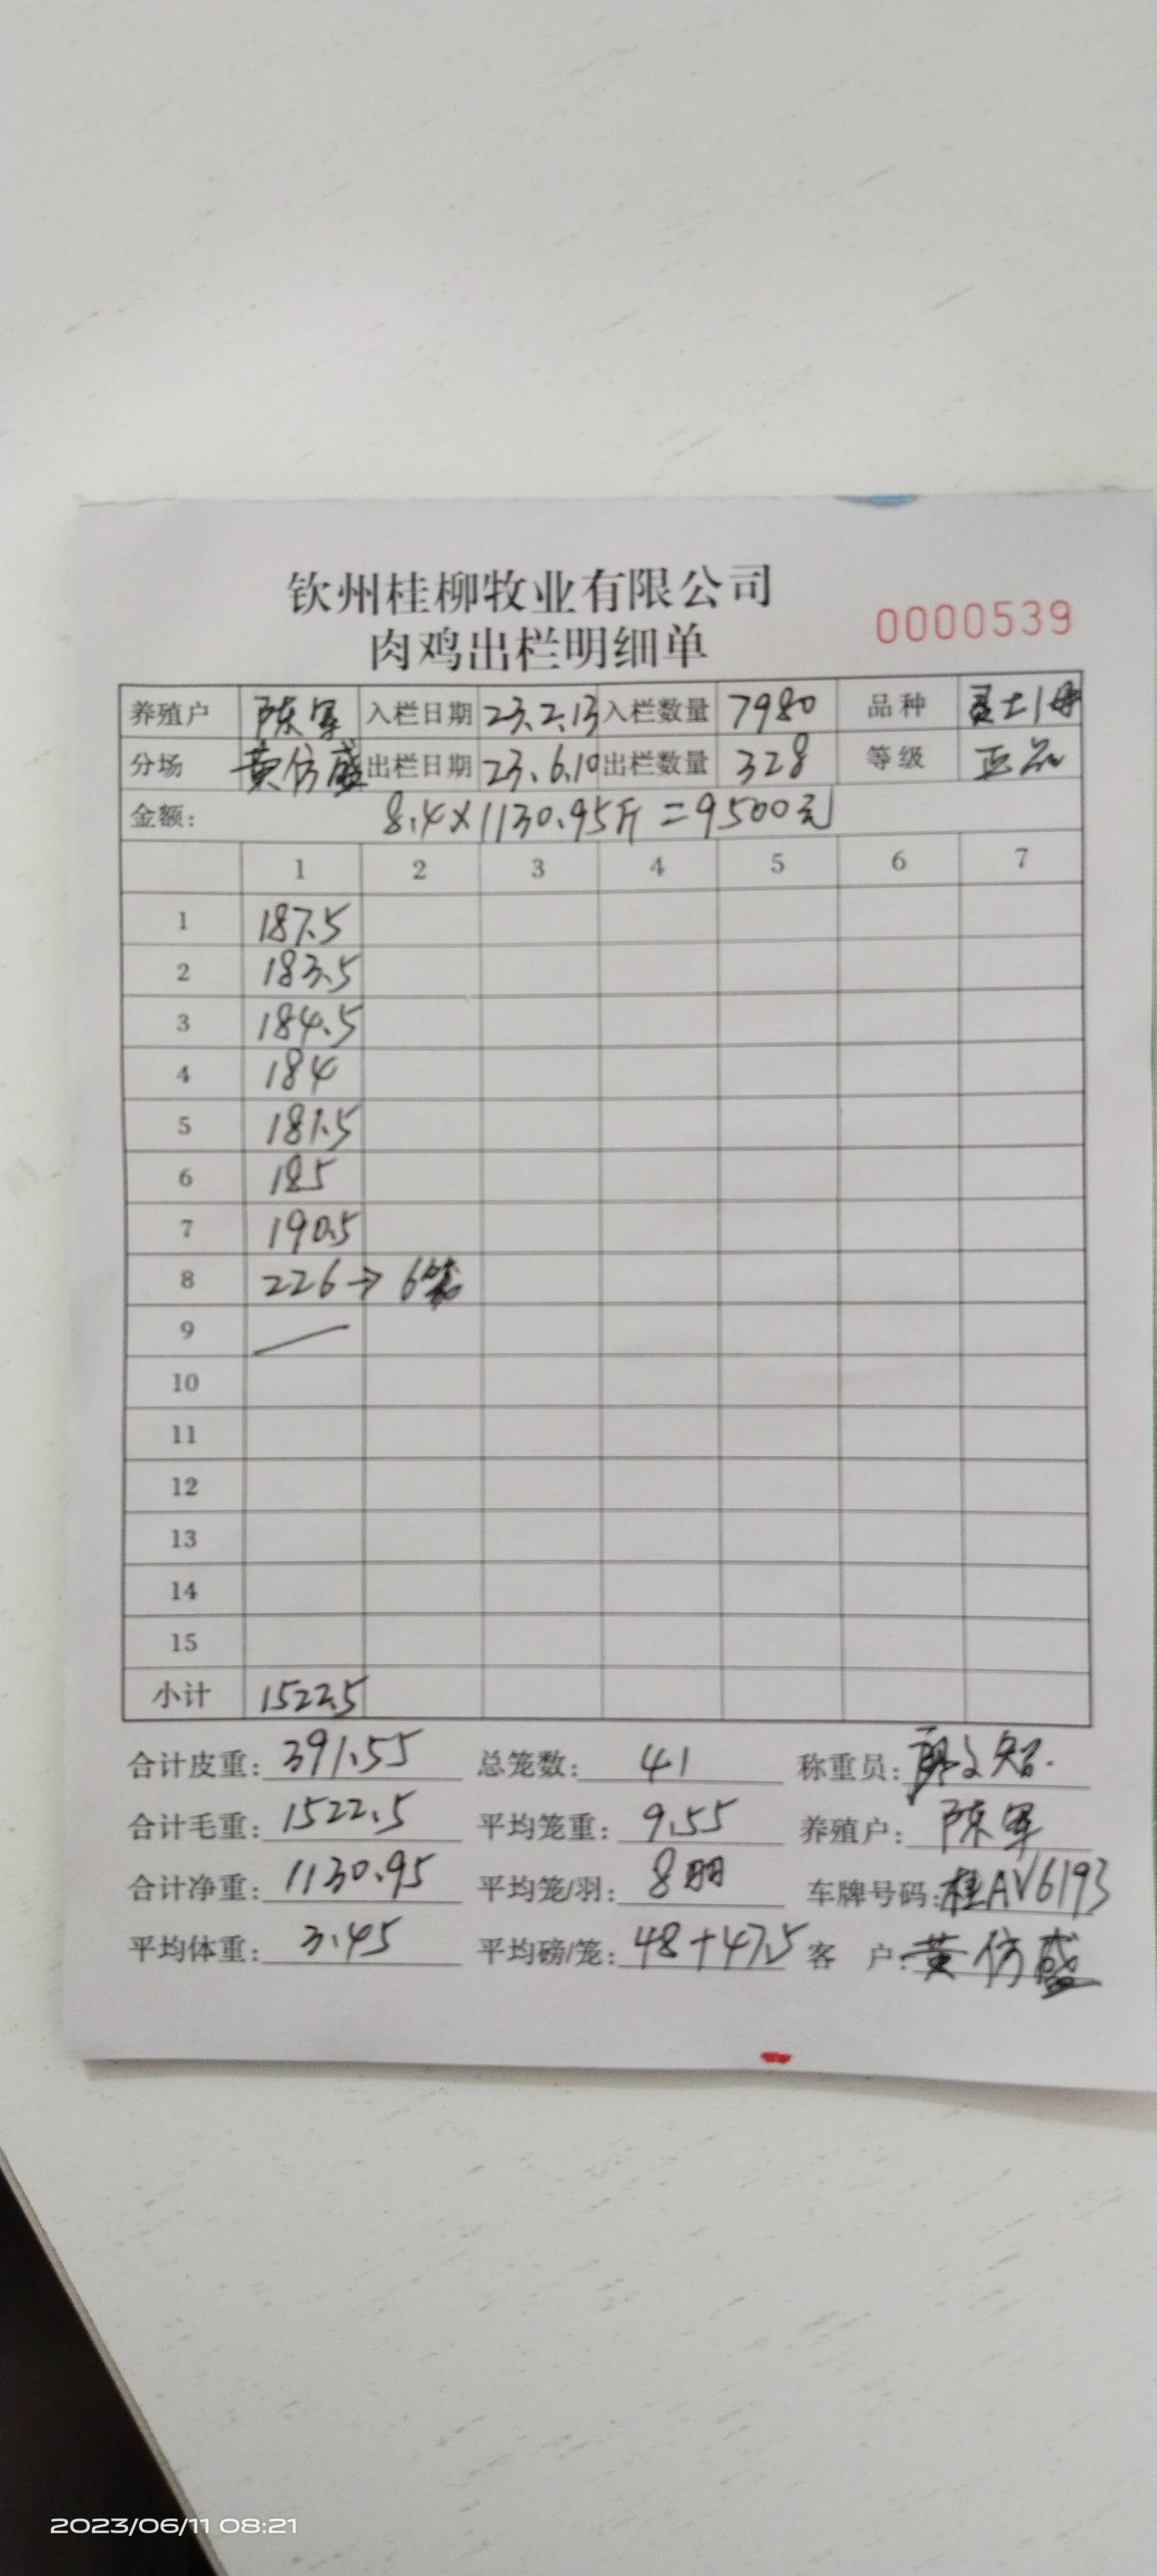 钦州桂柳牧业有限公司
肉鸡出栏明细单
0000539
养殖户 陈军 入栏日期 23.2.13 入栏数量 7980 品种 土1母
分场 黄仿盛 出栏日期 23.6.10 出栏数量 328 等级 正品
金额: 8.4×1130.95斤=9500元
1 2 3 4 5 6 7
1 187.5
2 183.5
3 184.5
4 184
5 181.5
6 185
7 190.5
8 226→6笼
9
10
11
12
13
14
15
小计 1522.5
合计皮重: 391.55 总笼数: 41 称重员: 文知
合计毛重: 1522.5 平均笼重: 9.55 养殖户: 陈军
合计净重: 1130.95 平均笼/羽: 8羽 车牌号码: 桂AV6193
平均体重: 3.45 平均磅/笼: 48+47.5 客户: 黄仿盛
2023/06/11 08:21